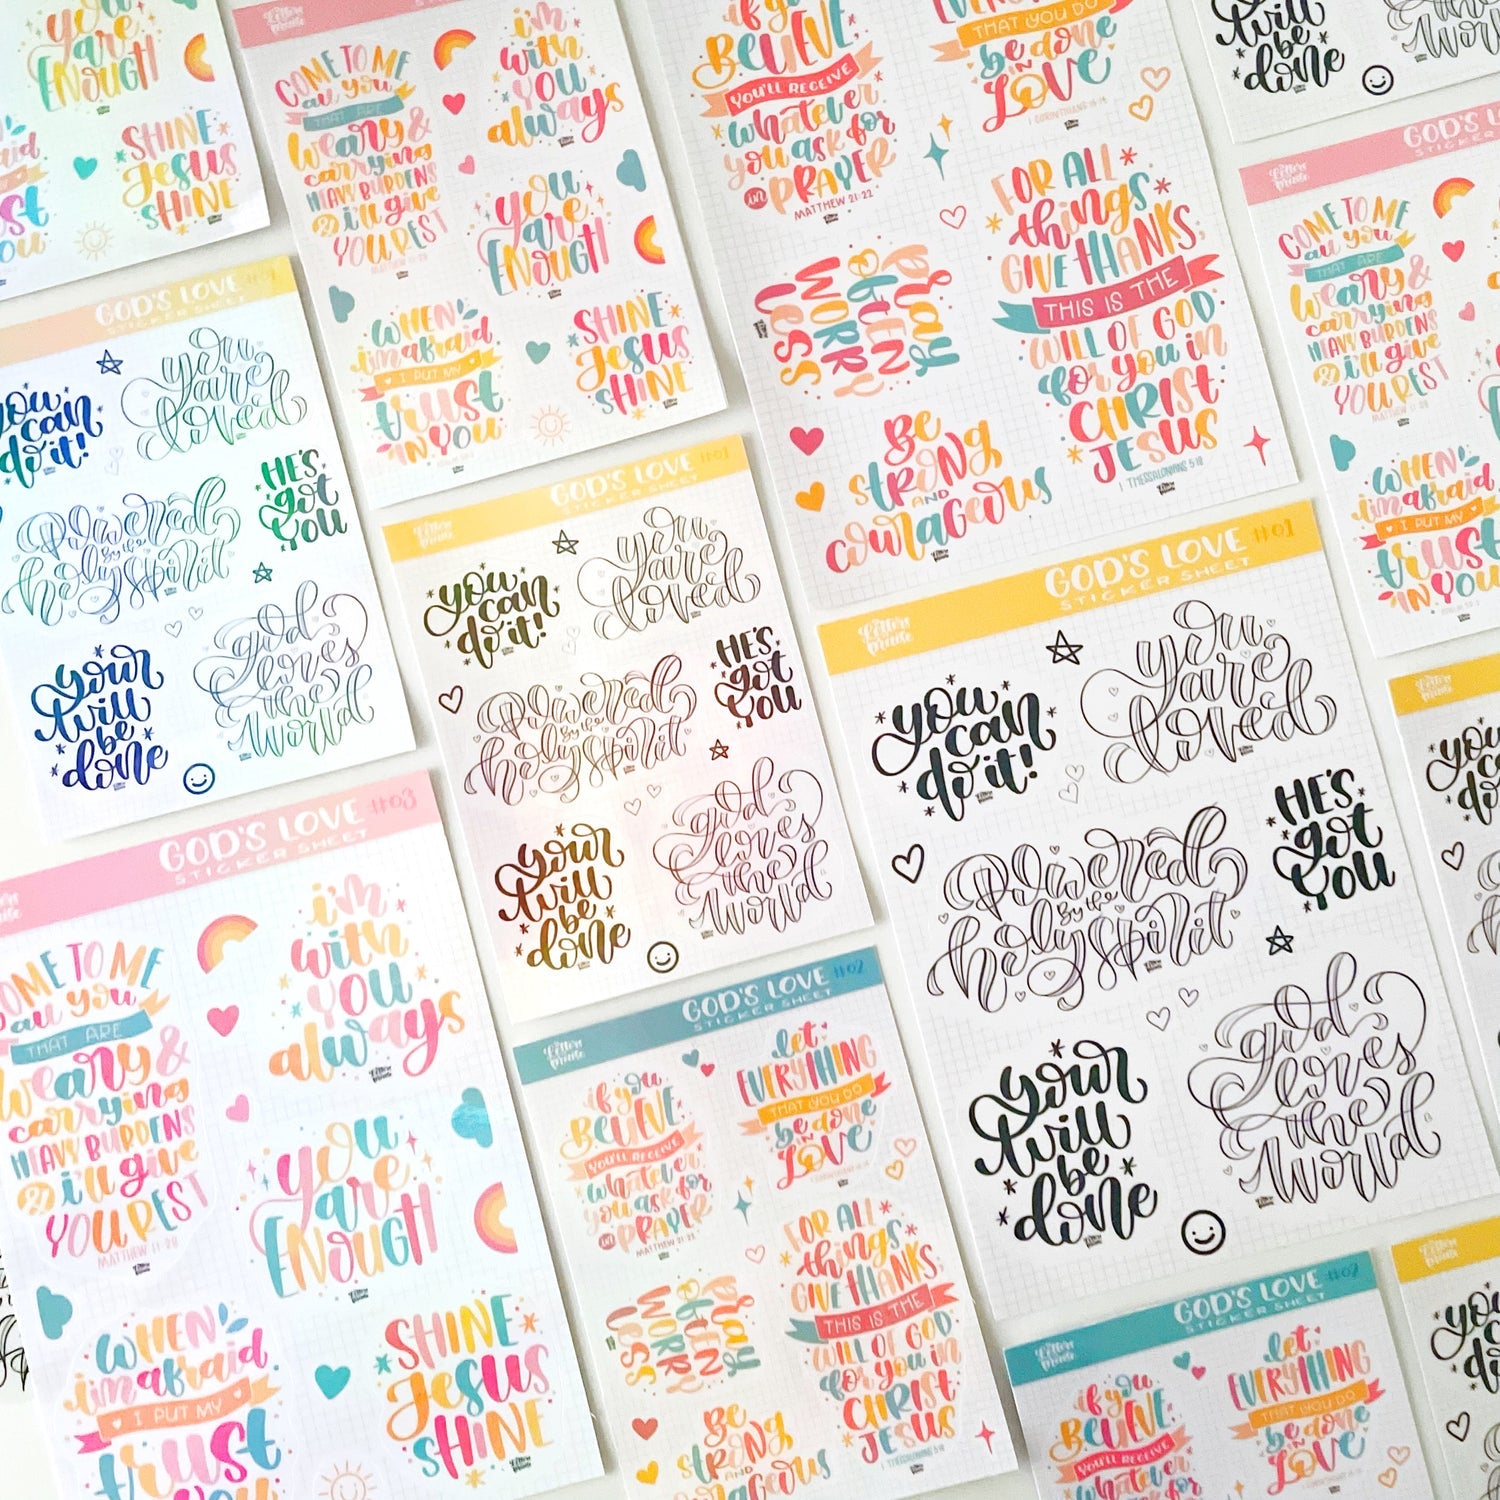 you
are
ENOUGH
SHINE
Jesus
SHINE
COME TO ME
all you
THAT ARE
weary &
carrying
HEAVY BURDENS
& i'll give
YOU REST
MATTHEW 11:28
i'm
with
you
always
you
are
ENOUGH
WHEN
i'm afraid
I PUT MY
trust
IN YOU
SHINE
Jesus
SHINE
if you
BELIEVE
YOU'LL RECEIVE
whatever
you ask for
in PRAYER
MATTHEW 21:22
EVERYTHING
THAT YOU DO
be done
IN
LOVE
1 CORINTHIANS 16:14
pray
often
worry
less
FOR ALL
things
GIVE THANKS,
THIS IS THE
WILL OF GOD
for you in
CHRIST
JESUS
1 THESSALONIANS 5:18
Be
strong
AND
courageous
will
be
done
world
GOD'S L
STICKER SHE
Letters
COME TO ME
all you
THAT ARE
weary &
carrying
HEAVY BURDENS
& i'll give
YOU REST
MATTHEW 11:28
WHEN
i'm afraid
I PUT MY
trust
IN YOU
GOD'S LOVE
STICKER SHEET
you
can
do it!
you
are
loved
HE'S
got
you
Powered
By the
holy spirit
your
will
be
done
god
loves
the
world
GOD'S LOVE #01
STICKER SHEET
you
can
do it!
you
are
loved
HE'S
got
you
Powered
By the
holy spirit
your
will
be
done
god
loves
the
world
GOD'S LOVE #01
STICKER SHEET
you
can
do it!
you
are
loved
HE'S
got
you
Powered
By the
holy spirit
your
will
be
done
god
loves
the
world
GOD'S LOVE #03
STICKER SHEET
COME TO ME
all you
THAT ARE
weary &
carrying
HEAVY BURDENS
& i'll give
YOU REST
MATTHEW 11:28
i'm
with
you
always
you
are
ENOUGH
WHEN
i'm afraid
I PUT MY
trust
SHINE
Jesus
SHINE
GOD'S LOVE #02
STICKER SHEET
if you
BELIEVE
YOU'LL RECEIVE
whatever
you ask for
in PRAYER
MATTHEW 21:22
let
EVERYTHING
THAT YOU DO
be done
IN
LOVE
pray
often
worry
less
FOR ALL
things
GIVE THANKS,
THIS IS THE
WILL OF GOD
for you in
CHRIST
JESUS
1 THESSALONIANS 5:18
Be
strong
AND
courageous
GOD'S LOVE #02
STICKER SHEET
if you
BELIEVE
YOU'LL RECEIVE
whatever
let
EVERYTHING
THAT YOU DO
be done
IN
LOVE